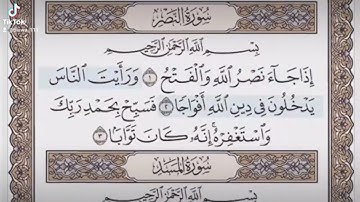 TikTok
سُورَةُ النَّصْرِ
بِسْمِ اللَّهِ الرَّحْمَٰنِ الرَّحِيمِ
إِذَا جَاءَ نَصْرُ اللَّهِ وَالْفَتْحُ ١ وَرَأَيْتَ النَّاسَ
يَدْخُلُونَ فِي دِينِ اللَّهِ أَفْوَاجًا ٢ فَسَبِّحْ بِحَمْدِ رَبِّكَ
وَاسْتَغْفِرْهُ إِنَّهُ كَانَ تَوَّابًا ٣
سُورَةُ الْمَسَدِ
بِسْمِ اللَّهِ الرَّحْمَٰنِ الرَّحِيمِ